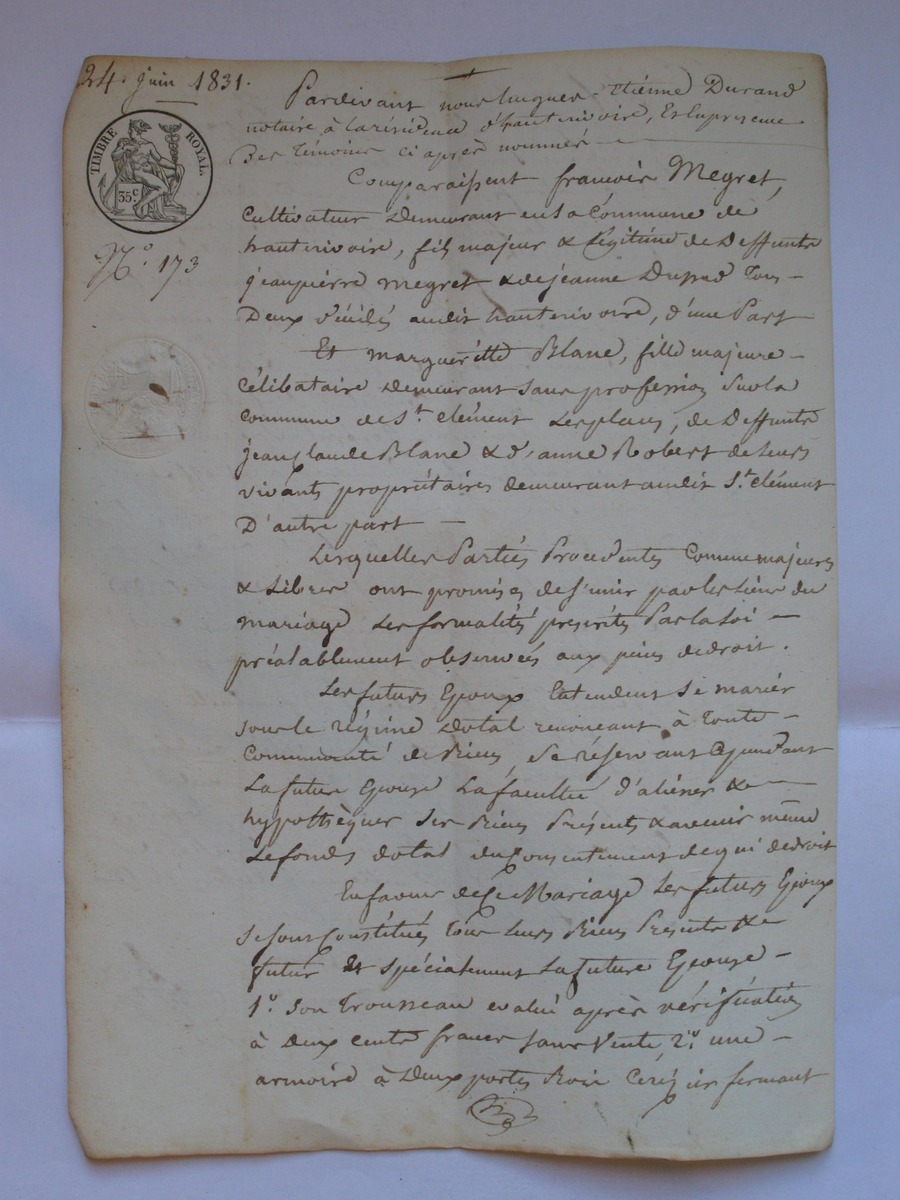 24. juin 1831.
Pardevant nous hugues-Etienne Durand
notaire à la résidence d'hauterivoire, Et En presence
Des Témoins ci après nommés
TIMBRE ROYAL.
35 c
N.o 173
Comparaissent francois Megret,
cultivateur Demeurant en La Commune de
hauterivoire, fils majeur & légitime de Deffunts
jean pierre megret & de jeanne Tous-
Deux audit hauterivoire, d'une Part
Et margueritte Blanc, fille majeure-
célibataire Demeurant sans profession Sur la
commune de St. clément Les places, de Deffunts
jean claude Blanc & d'anne Robert de Leurs
vivants propriétaires demeurant audit St. clément
D'autre part —
Lesquelles Parties Procedentes Comme majeures
& Libres ont promises de s'unir par les Liens du
mariage Les formalités prescrites Par la Loi —
préalablement observées aux peines de droit.
Les futurs Epoux Entendent Se marier
sous le régime Dotal renoncant à Toute-
Communauté de Biens, Se réservant Cependant
La future Epouse La faculté d'aliéner &
hypothèquer Ses Biens Présents & avenir même
Le fonds dotal du Consentement de qui de droit
En faveur de Ce Mariage Les futurs Epoux
Se sont Constitués Tous Leurs Biens Presents &
futur Et spécialement La future Epouse-
1.o Son Trousseau evalué après vérification
à Deux cents francs sans Vente, 2.o une-
armoire à Deux portes Bois Cerizier fermant